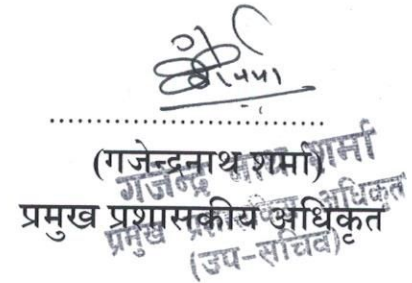 (गजेन्द्रनाथ शर्मा)
प्रमुख प्रशासकीय अधिकृत
गजेन्द्र नाथ शर्मा
प्रमुख प्रशासकीय अधिकृत
(उप-सचिव)